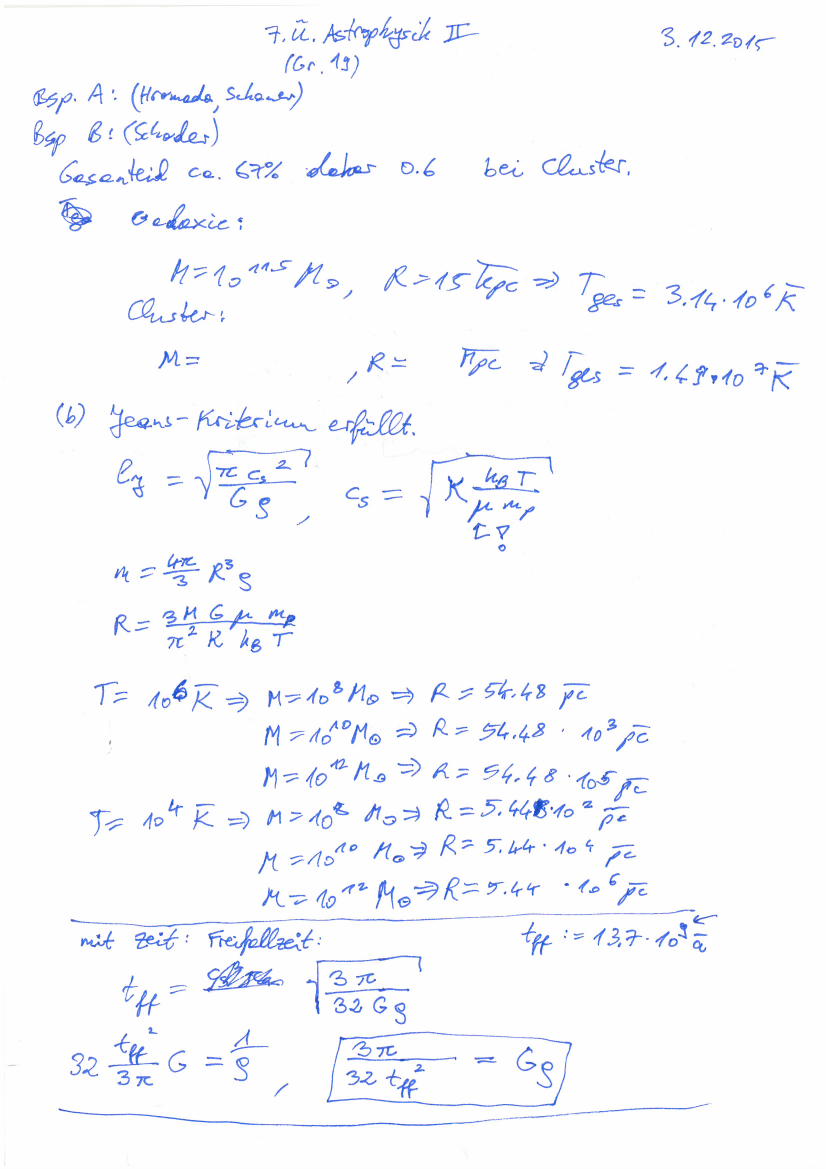 7. Ü. Astrophysik II 3.12.2015
(Gr. 19)
Bsp. A: (Hromada, Schauer)
Bsp B: (Schoder)
Gasanteil ca. 67% daher 0.6 bei Cluster.
Galaxie:
M=10^11.5 M☉, R=15 kpc ⇒ T_ges = 3.14·10^6 K
Cluster:
M= , R= Mpc ⇒ T_ges = 1.49·10^7 K
(b) Jeans-Kriterium erfüllt.
l_J = √(π c_s^2 / G ρ), c_s = √(K k_B T / μ m_p)
↑ !
m = 4π/3 R^3 ρ
R = 3 M G μ m_p / π^2 K k_B T
T = 10^6 K ⇒ M=10^8 M☉ ⇒ R = 54.48 pc
M=10^10 M☉ ⇒ R = 54.48 · 10^3 pc
M=10^12 M☉ ⇒ R = 54.48 · 10^5 pc
T= 10^4 K ⇒ M=10^8 M☉ ⇒ R=5.448·10^2 pc
M=10^10 M☉ ⇒ R= 5.44·10^4 pc
M=10^12 M☉ ⇒ R=5.44 ·10^6 pc
mit Zeit: Freifallzeit: t_ff := 13.7·10^9 a
t_ff = √(3π / 32 G ρ)
32 t_ff^2 / 3π G = 1/ρ , 3π / 32 t_ff^2 = Gρ